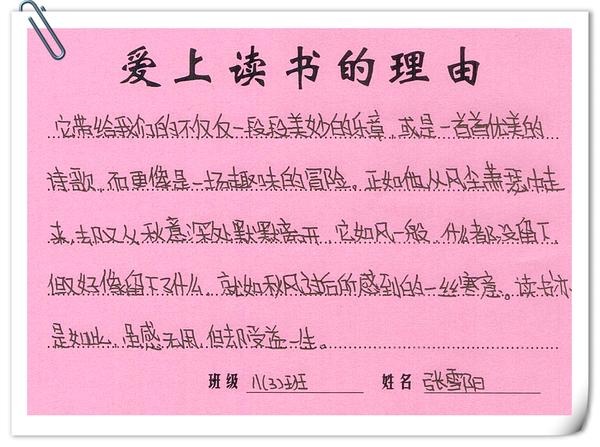 爱上读书的理由
它带给我们的不仅仅一段段美妙的乐章，或是一首首优美的
诗歌，而更像是一场趣味的冒险。正如他从风尘萧瑟中走
来，却又从秋意深处默默离开，它如风一般，什么都没留下，
但又好像留下了什么，就如秋风过后所感到的一丝寒意。读书亦
是如此，虽感无用，但却受益一生。
班级 八(3)班 姓名 张雪阳